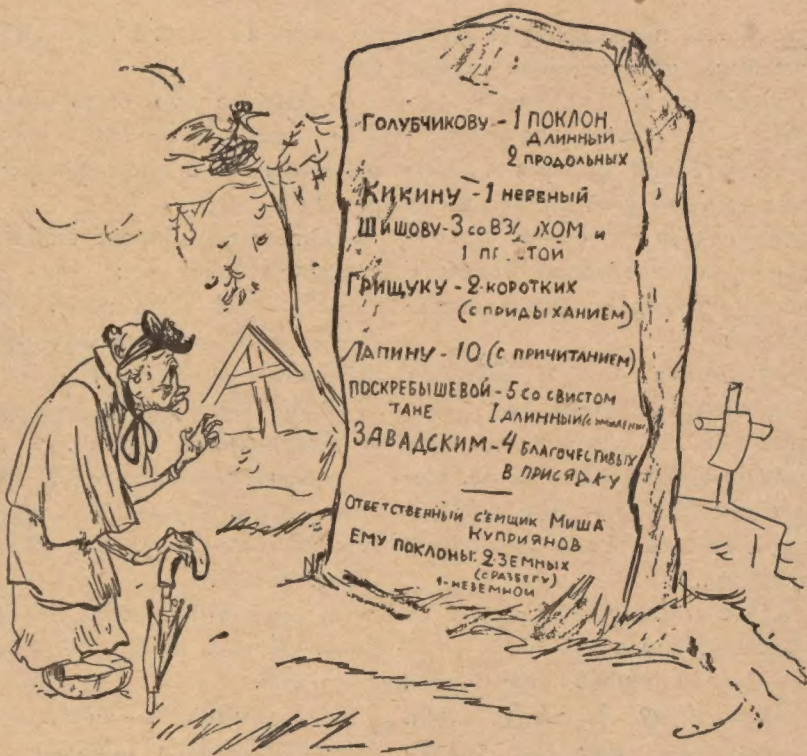 ГОЛУБЧИКОВУ - 1 ПОКЛОН
ДЛИННЫЙ
2 ПРОДОЛЬНЫХ
КИКИНУ - 1 НЕРВНЫЙ
ШИШОВУ - 3 СО И
1
ГРИЩУКУ - 2 КОРОТКИХ
(С ПРИДЫХАНИЕМ)
ЛАПИНУ - 10 (С ПРИЧИТАНИЕМ)
ПОСКРЕБЫШЕВОЙ - 5 СО СВИСТОМ
ТАНЕ 1 ДЛИННЫЙ
ЗАВАДСКИМ - 4 БЛАГОЧЕСТИВЫХ
В ПРИСЯДКУ
ОТВЕТСТВЕННЫЙ С'ЕМЩИК МИША
КУПРИЯНОВ
ЕМУ ПОКЛОНЫ: 2 ЗЕМНЫХ
(С РАЗБЕГУ)
1 - НЕЗЕМНОЙ